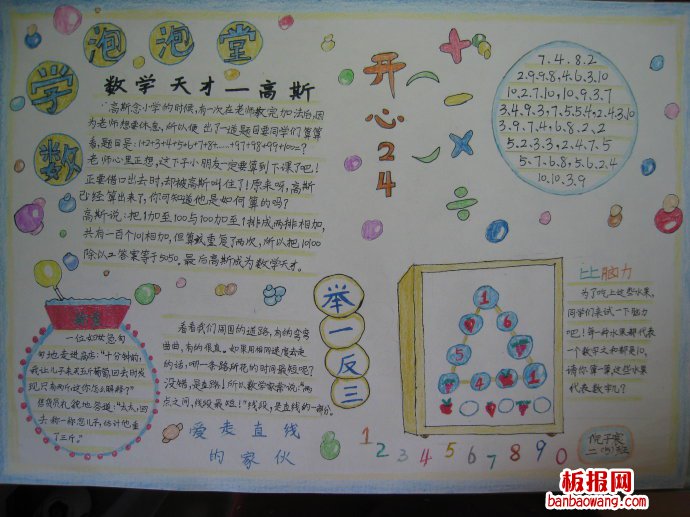 学数泡泡堂
数学天才—高斯
高斯念小学的时候,有一次在老师教完加法后,因
为老师想要休息,所以便出了一道题目要同学们算算
看,题目是:1+2+3+4+5+6+7+8+……+97+98+99+100=?
老师心里正想,这下子小朋友一定要算到下课了吧!
正要借口出去时,却被高斯叫住了!原来呀,高斯
已经算出来了,你可知道他是如何算的吗?
高斯说:把1加至100与100加至1排成两排相加,
共有一百个101相加,但算式重复了两次,所以把10100
除以二答案等于5050。最后高斯成为数学天才。
开心24
+
-
×
÷
7.4.8.2
2.9.9.8,4.6.3.10
10.2.7.10,10.9.3.7
3.4.9.3,7.5.5.4,2.4.3.10
3.9.7.4,6.8.2.2
5.2.3.3,2.4.7.5
5.7.6.8,5.6.2.4
10.10.3.9
一位妇女急匆
匆地走进商店:"十分钟前,
我让儿子来买三斤葡萄,回去时发
现只有两斤,这你怎么解释?"
售货员礼貌地答道:"太太,回
去称一称您儿子,估计他重
了三斤。"
看看我们周围的道路,有的弯弯
曲曲,有的很直。如果用相同速度去走
的话,哪一条路所花的时间最短呢?
没错,是直路!所以数学家常说:"两
点之间,线段最短!"线段,是直线的一部分。
爱走直线
的家伙
举一反三
1
6
5
7
4
1
比脑力
为了吃上这些水果,
同学们来试一下脑力
吧!每一种水果都代表
一个数字,之和都是10,
请你算一算,这些水果
代表数字几?
1 2 3 4 5 6 7 8 9 0
二(5)班
板报网
banbaowang.com